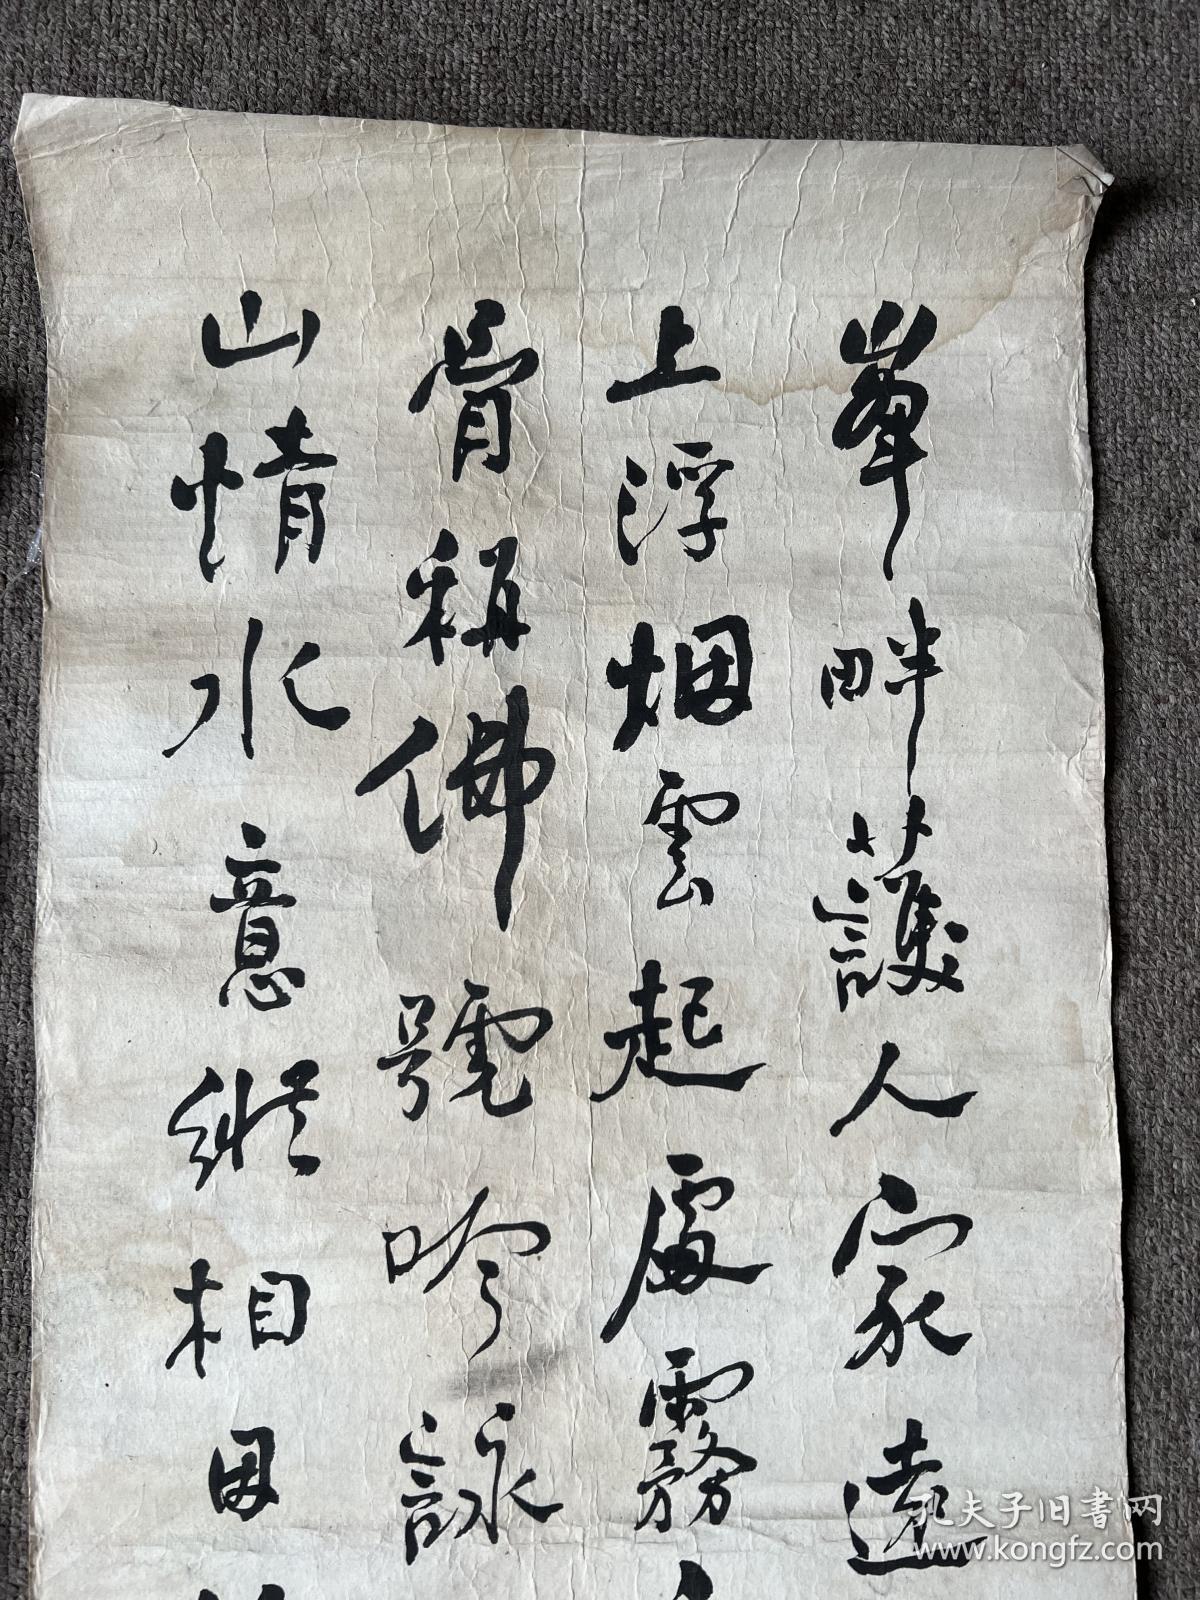 峯畔護人家遠
上浮烟雲起處霧
骨稱佛號吟詠
山情水意縱相因
孔夫子旧書网
www.kongfz.com